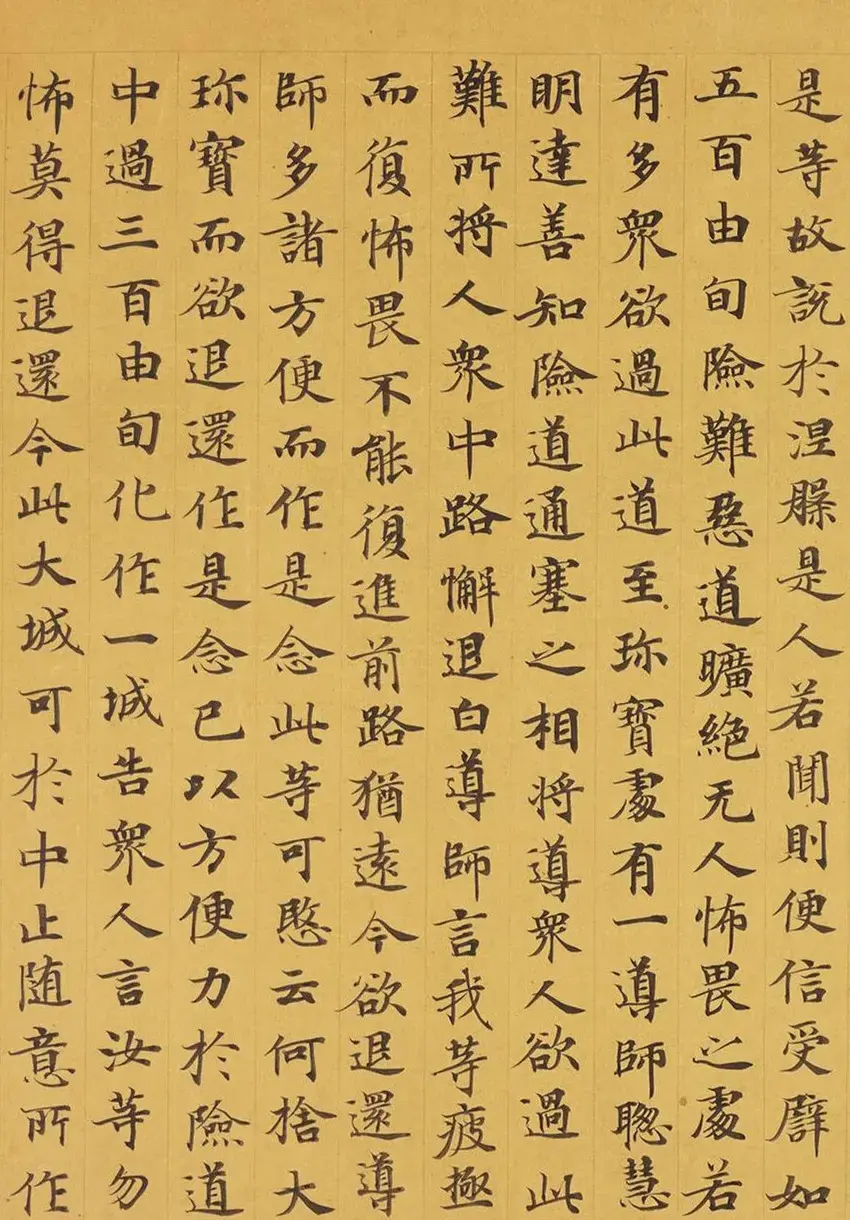 是等故説於涅槃是人若聞則便信受譬如
五百由旬險難惡道曠絶无人怖畏之處若
有多衆欲過此道至珎寶處有一導師聡慧
明達善知險道通塞之相將導衆人欲過此
難所將人衆中路懈退白導師言我等疲極
而復怖畏不能復進前路猶遠今欲退還導
師多諸方便而作是念此等可愍云何捨大
珎寶而欲退還作是念已以方便力於險道
中過三百由旬化作一城告衆人言汝等勿
怖莫得退還今此大城可於中止随意所作